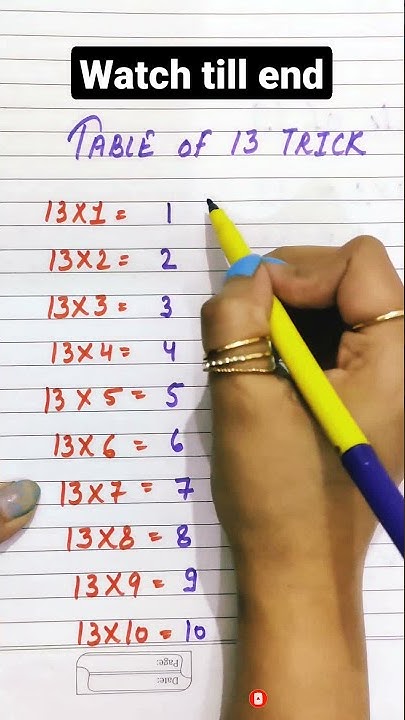 Watch till end
TABLE OF 13 TRICK
13X1 = 1
13X2 = 2
13X3 = 3
13X4 = 4
13X5 = 5
13X6 = 6
13X7 = 7
13X8 = 8
13X9 = 9
13X10 = 10
Page:
Date: